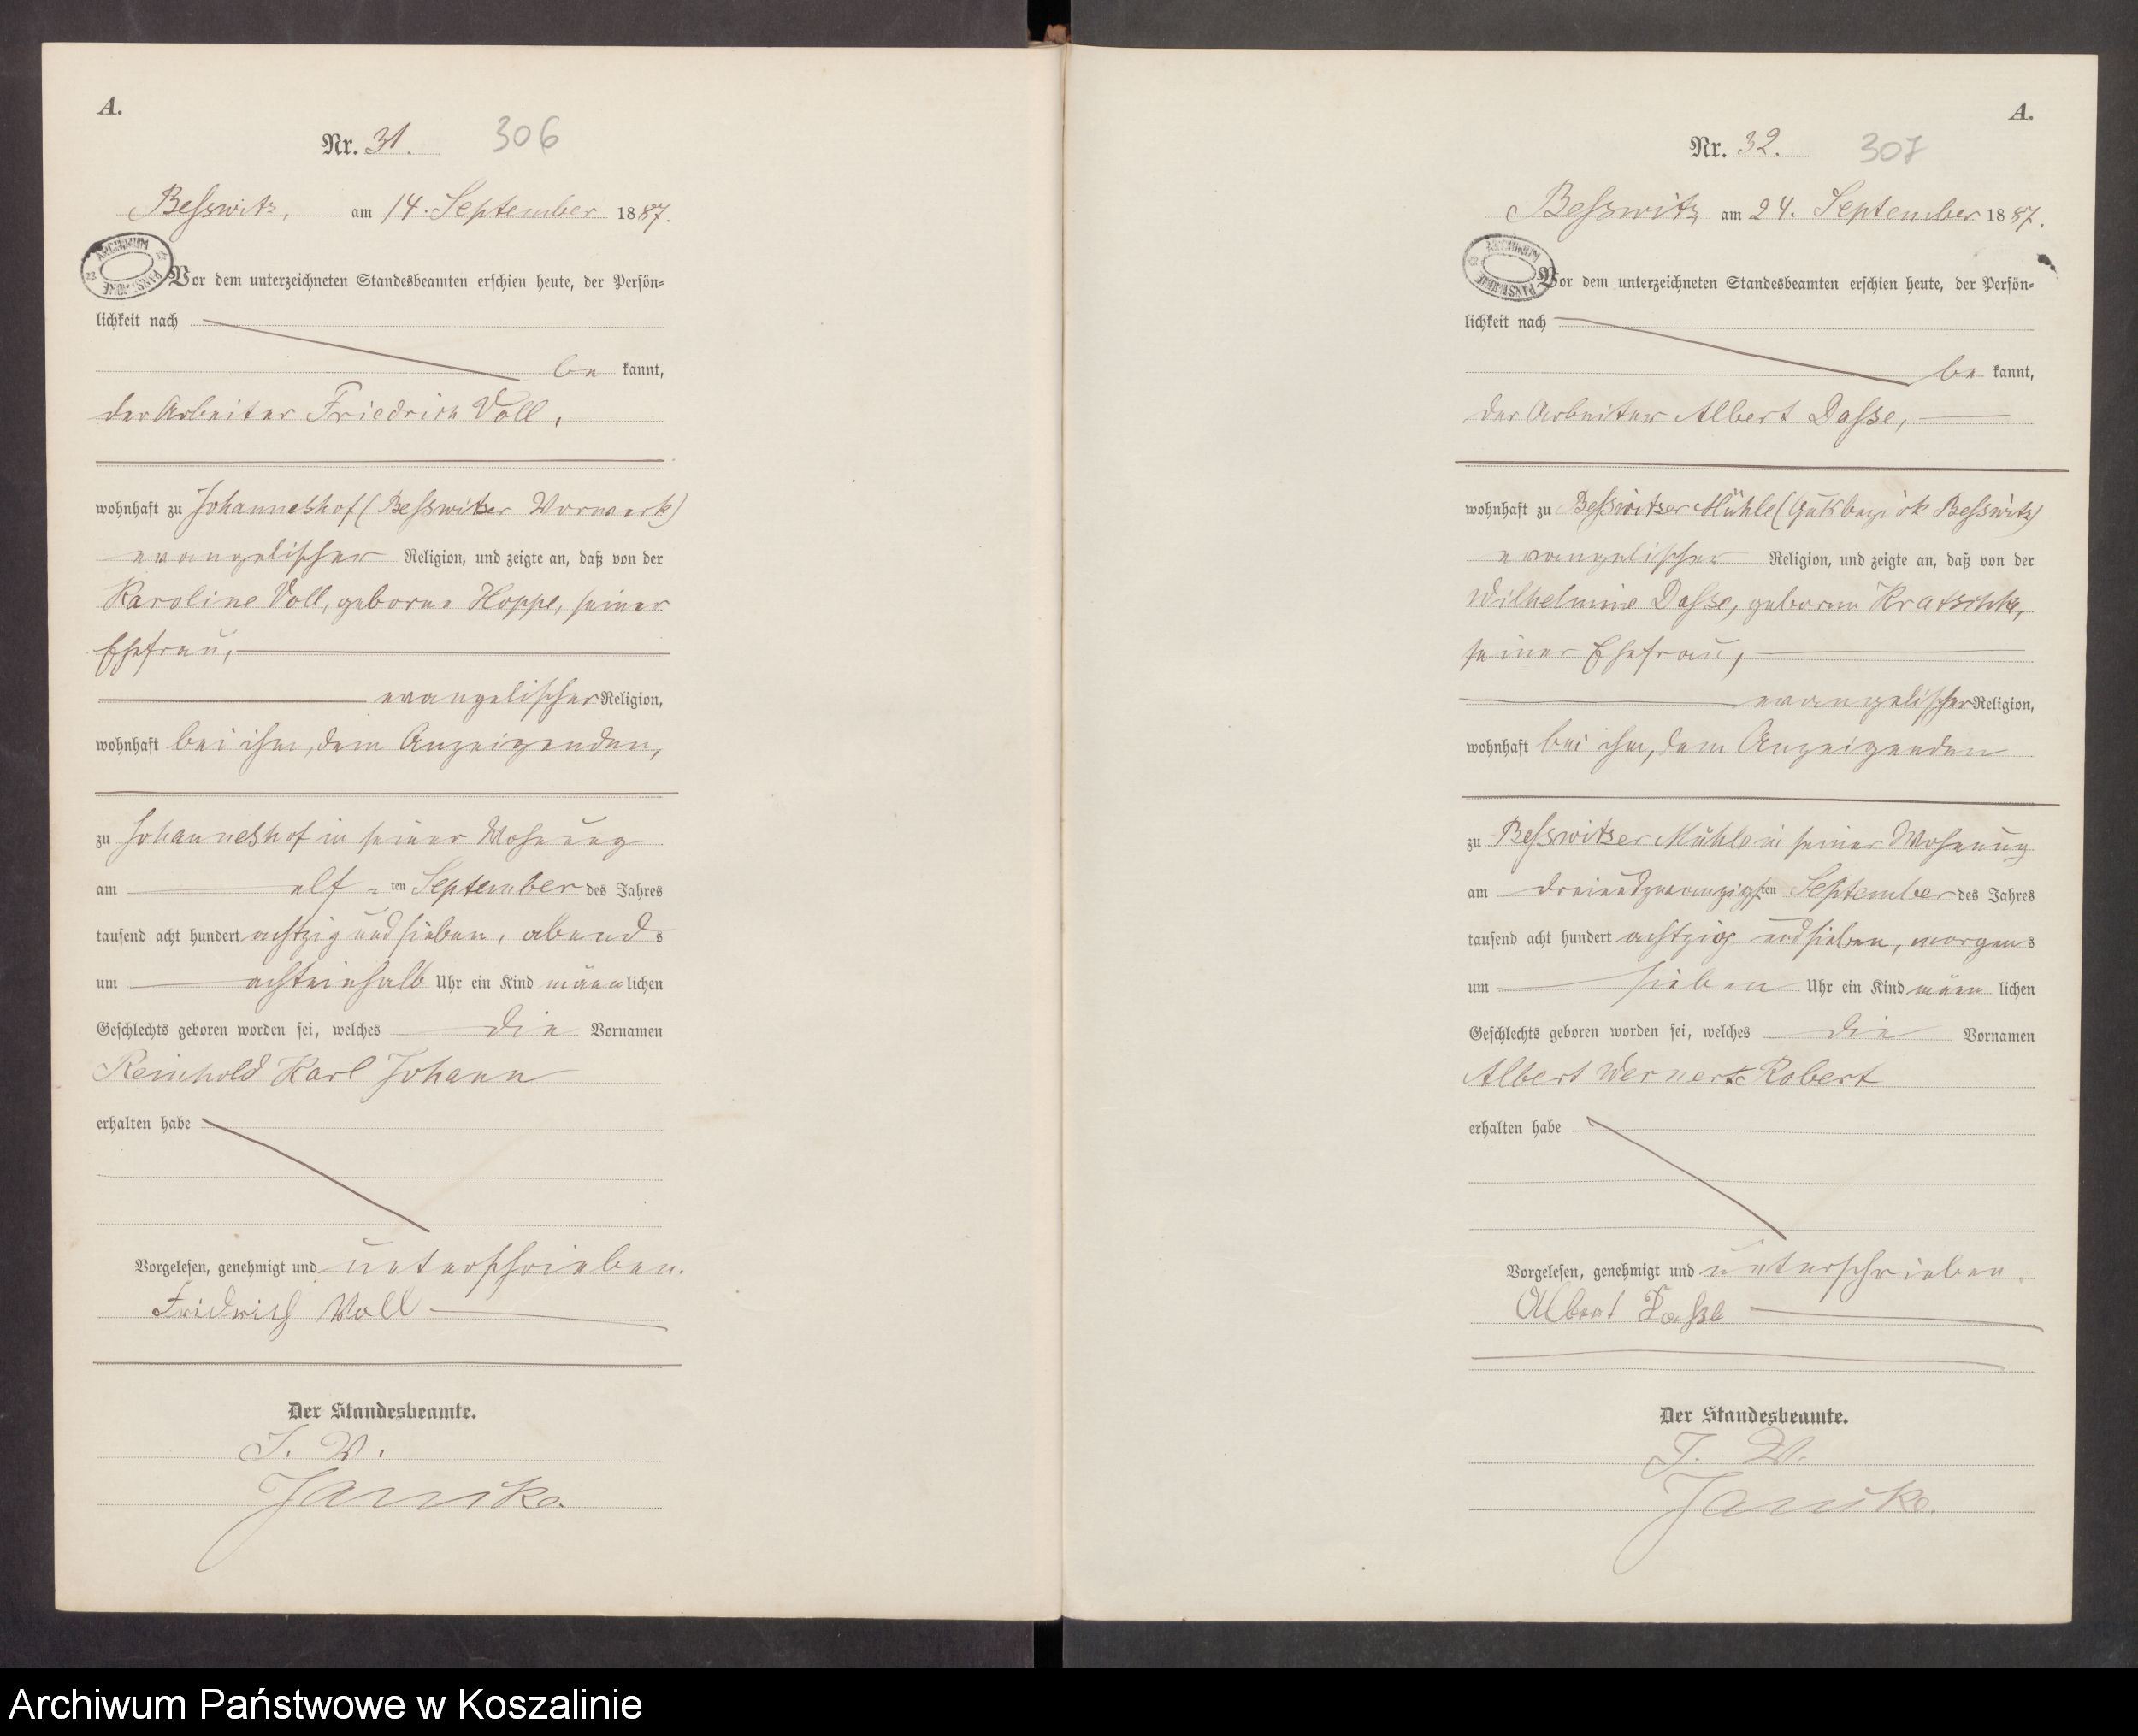 A.
Nr. 31. 306
Beſswitz, am 14. September 1887.
ARCHIWUM PAŃSTWOWE
Vor dem unterzeichneten Standesbeamten erſchien heute, der Perſön-
lichkeit nach
be kannt,
der Arbeiter Friedrich Voll,
wohnhaft zu Johanneshof (Beſswitzer Vorwerk)
evangeliſcher Religion, und zeigte an, daß von der
Karoline Voll, geborne Hoppe, ſeiner
Ehefrau,
evangeliſcher Religion,
wohnhaft bei ihm, dem Anzeigenden,
zu Johanneshof in ſeiner Wohnung
am elf -ten September des Jahres
tauſend acht hundert achtzig und ſieben, abends
um achteinhalb Uhr ein Kind männlichen
Geſchlechts geboren worden ſei, welches die Vornamen
Reinhold Karl Johann
erhalten habe
Vorgeleſen, genehmigt und unterſchrieben.
Fridrich Voll
Der Standesbeamte.
J. V.
Janike.
A.
Nr. 32. 307
Beſswitz am 24. September 1887.
ARCHIWUM PAŃSTWOWE
Vor dem unterzeichneten Standesbeamten erſchien heute, der Perſön-
lichkeit nach
be kannt,
der Arbeiter Albert Daſse,
wohnhaft zu Beſswitzer Mühle (Gutsbezirk Beſswitz)
evangeliſcher Religion, und zeigte an, daß von der
Wilhelmine Daſse, geborne Kratschke,
ſeiner Ehefrau,
evangeliſcher Religion,
wohnhaft bei ihm, dem Anzeigenden
zu Beſswitzer Mühle in ſeiner Wohnung
am dreiundzwanzigſten September des Jahres
tauſend acht hundert achtzig und ſieben, morgens
um ſieben Uhr ein Kind männ lichen
Geſchlechts geboren worden ſei, welches die Vornamen
Albert Werner Robert
erhalten habe
Vorgeleſen, genehmigt und unterſchrieben.
Albert Daſse
Der Standesbeamte.
J. V.
Janike.
Archiwum Państwowe w Koszalinie